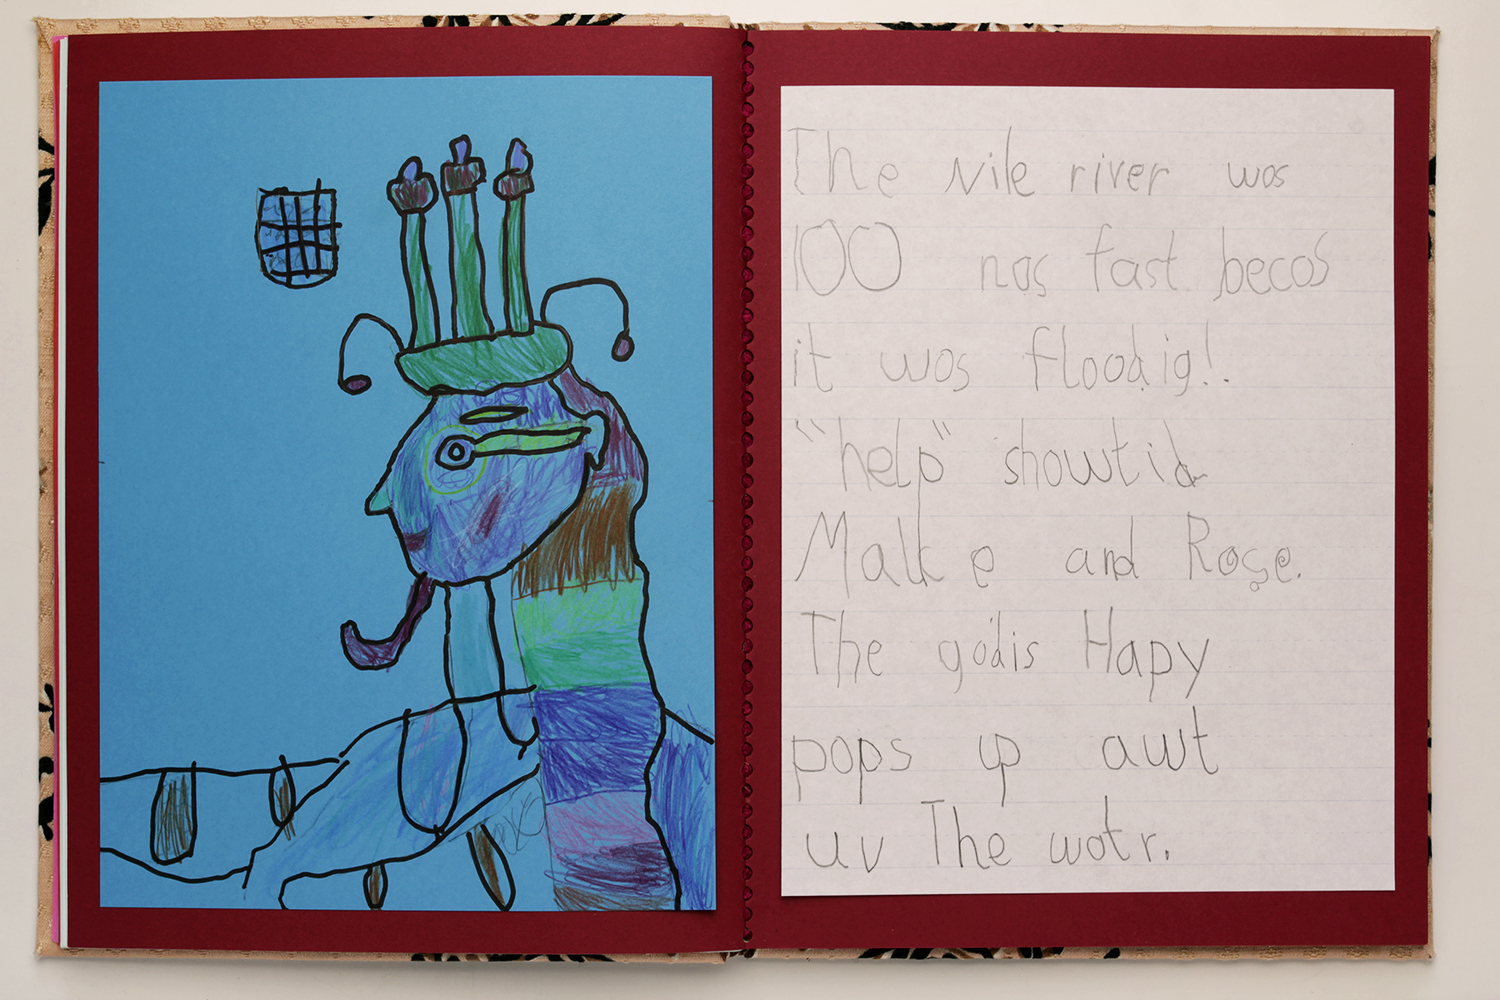 The Nile river wos
100 nos fast becos
it wos floodig!.
"help" showtid
Malk e and Rose.
The godis Hapy
pops up awt
uv The wotr.